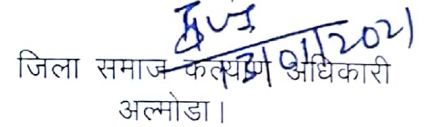 13/01/2021
जिला समाज कल्याण अधिकारी
अल्मोडा।